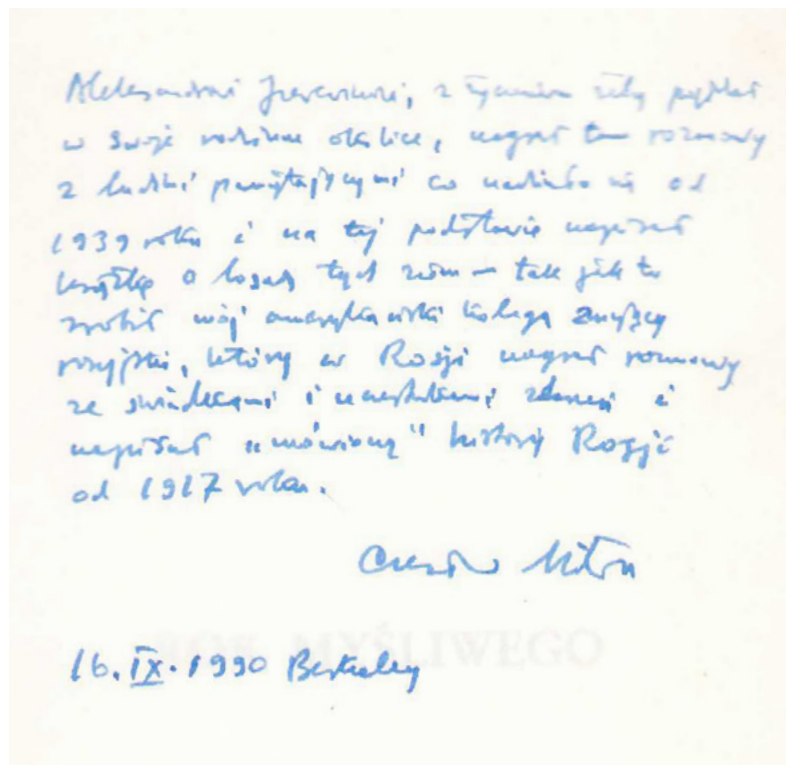 Aleksandrowi Jurewiczowi, z życzeniem żeby pojechał
w swoje rodzinne okolice, nagrał tam rozmowy
z ludźmi pamiętającymi co nadziało się od
1939 roku i na tej podstawie napisał
książkę o losach tych ziem – tak jak to
zrobił mój amerykański kolega znający
rosyjski, który w Rosji nagrał rozmowy
ze świadkami i uczestnikami zdarzeń i
napisał „mówioną" historię Rosji
od 1917 roku.
Czesław Miłosz
ROK MYŚLIWEGO
16.IX.1990 Berkeley